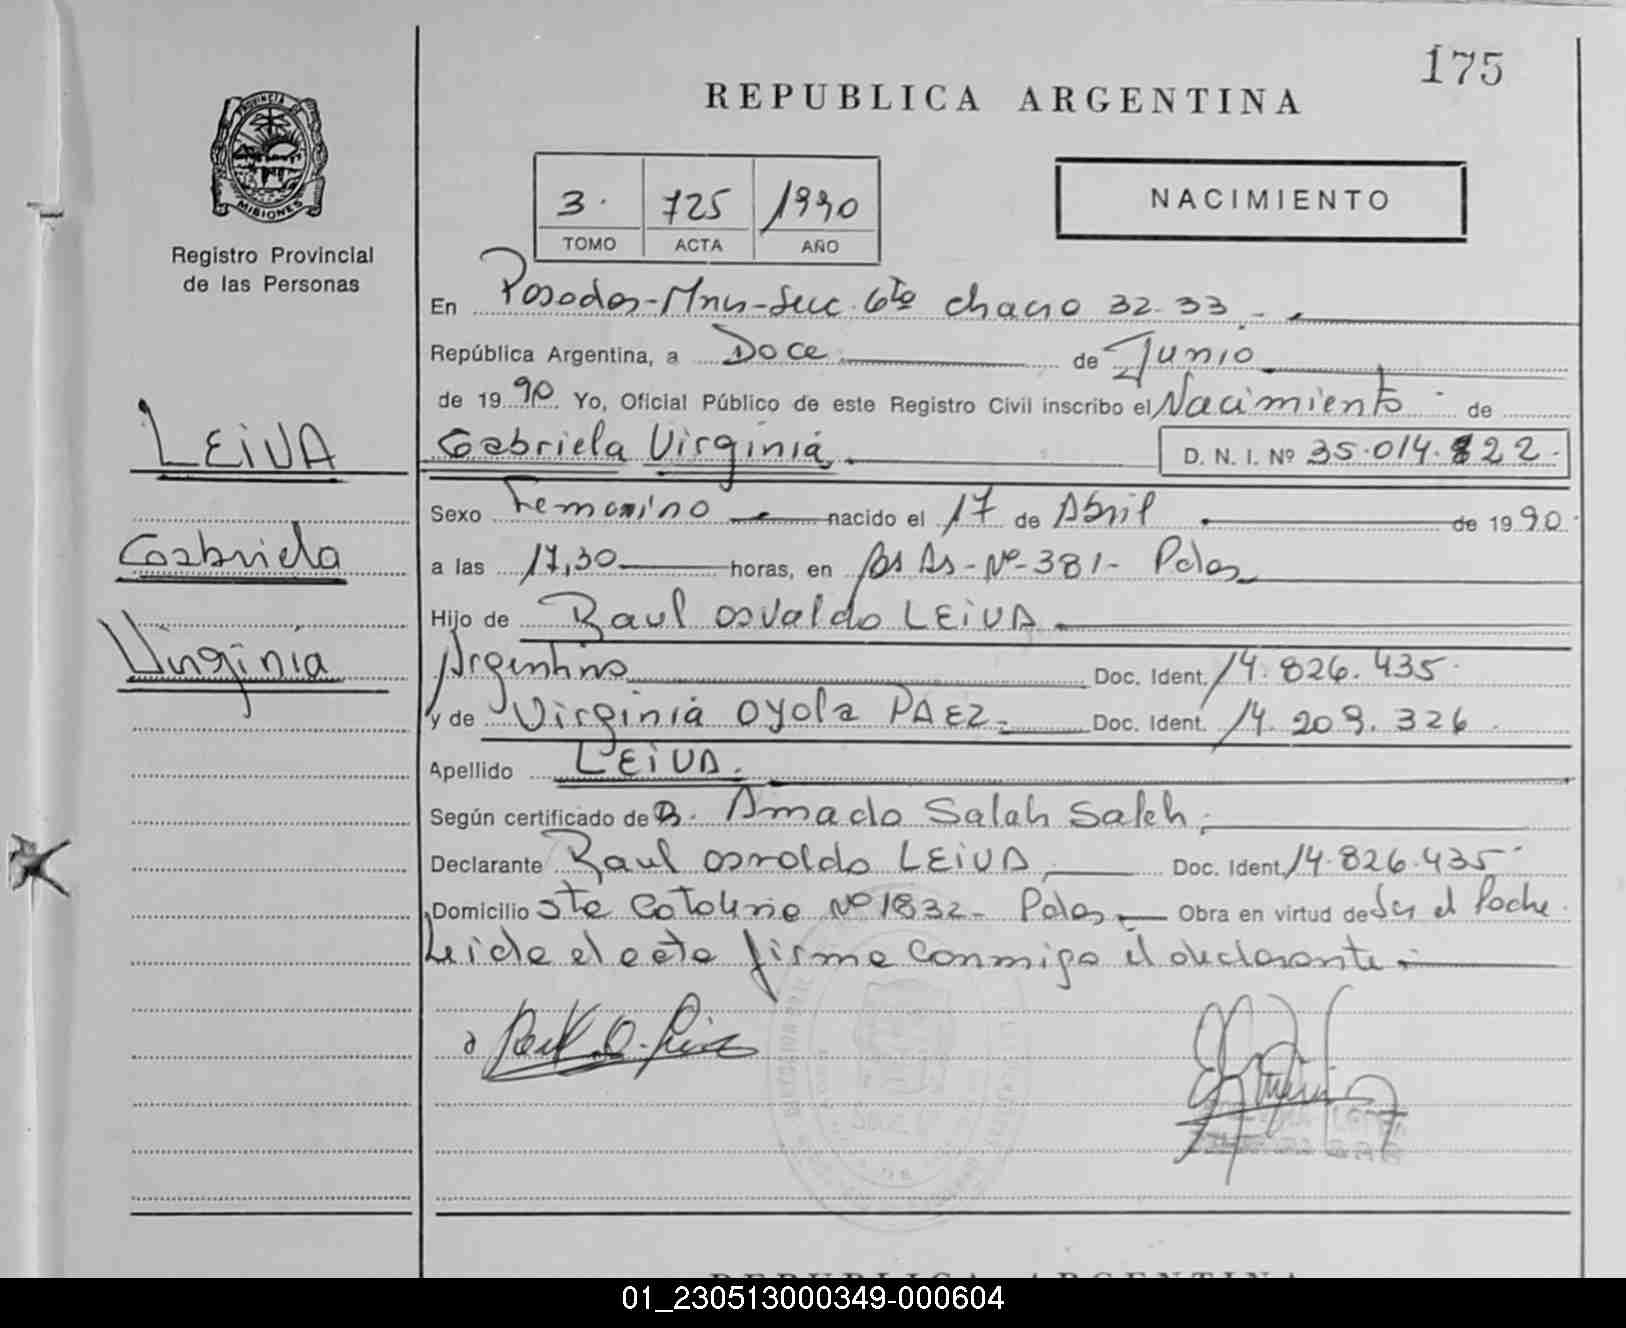 175
REPUBLICA ARGENTINA
MISIONES
Registro Provincial
de las Personas
3. 725 1990
TOMO ACTA AÑO
NACIMIENTO
En Posadas-Mnes-Secc. 6to chaco 32-33.-
República Argentina, a Doce de Junio
de 1990 Yo, Oficial Público de este Registro Civil inscribo el Nacimiento de
Gabriela Virginia D. N. I. Nº 35.014.822.
LEIVA
Gabriela
Virginia
Sexo Femenino nacido el 17 de Abril de 1990.
a las 17,30 horas, en Bs As-Nº-381- Pdas
Hijo de Raul Osvaldo LEIVA
Argentino Doc. Ident. 14.826.435.
y de Virginia Oyola PAEZ Doc. Ident. 14.209.326.
Apellido LEIVA.
Según certificado de Amado Salah Saleh
Declarante Raul Osvaldo LEIVA Doc. Ident. 14.826.435
Domicilio Sta Catalina Nº 1832- Pdas Obra en virtud de Ser el Padre.
Leida el acta firma conmigo el declarante.
REPUBLICA ARGENTINA
01_230513000349-000604